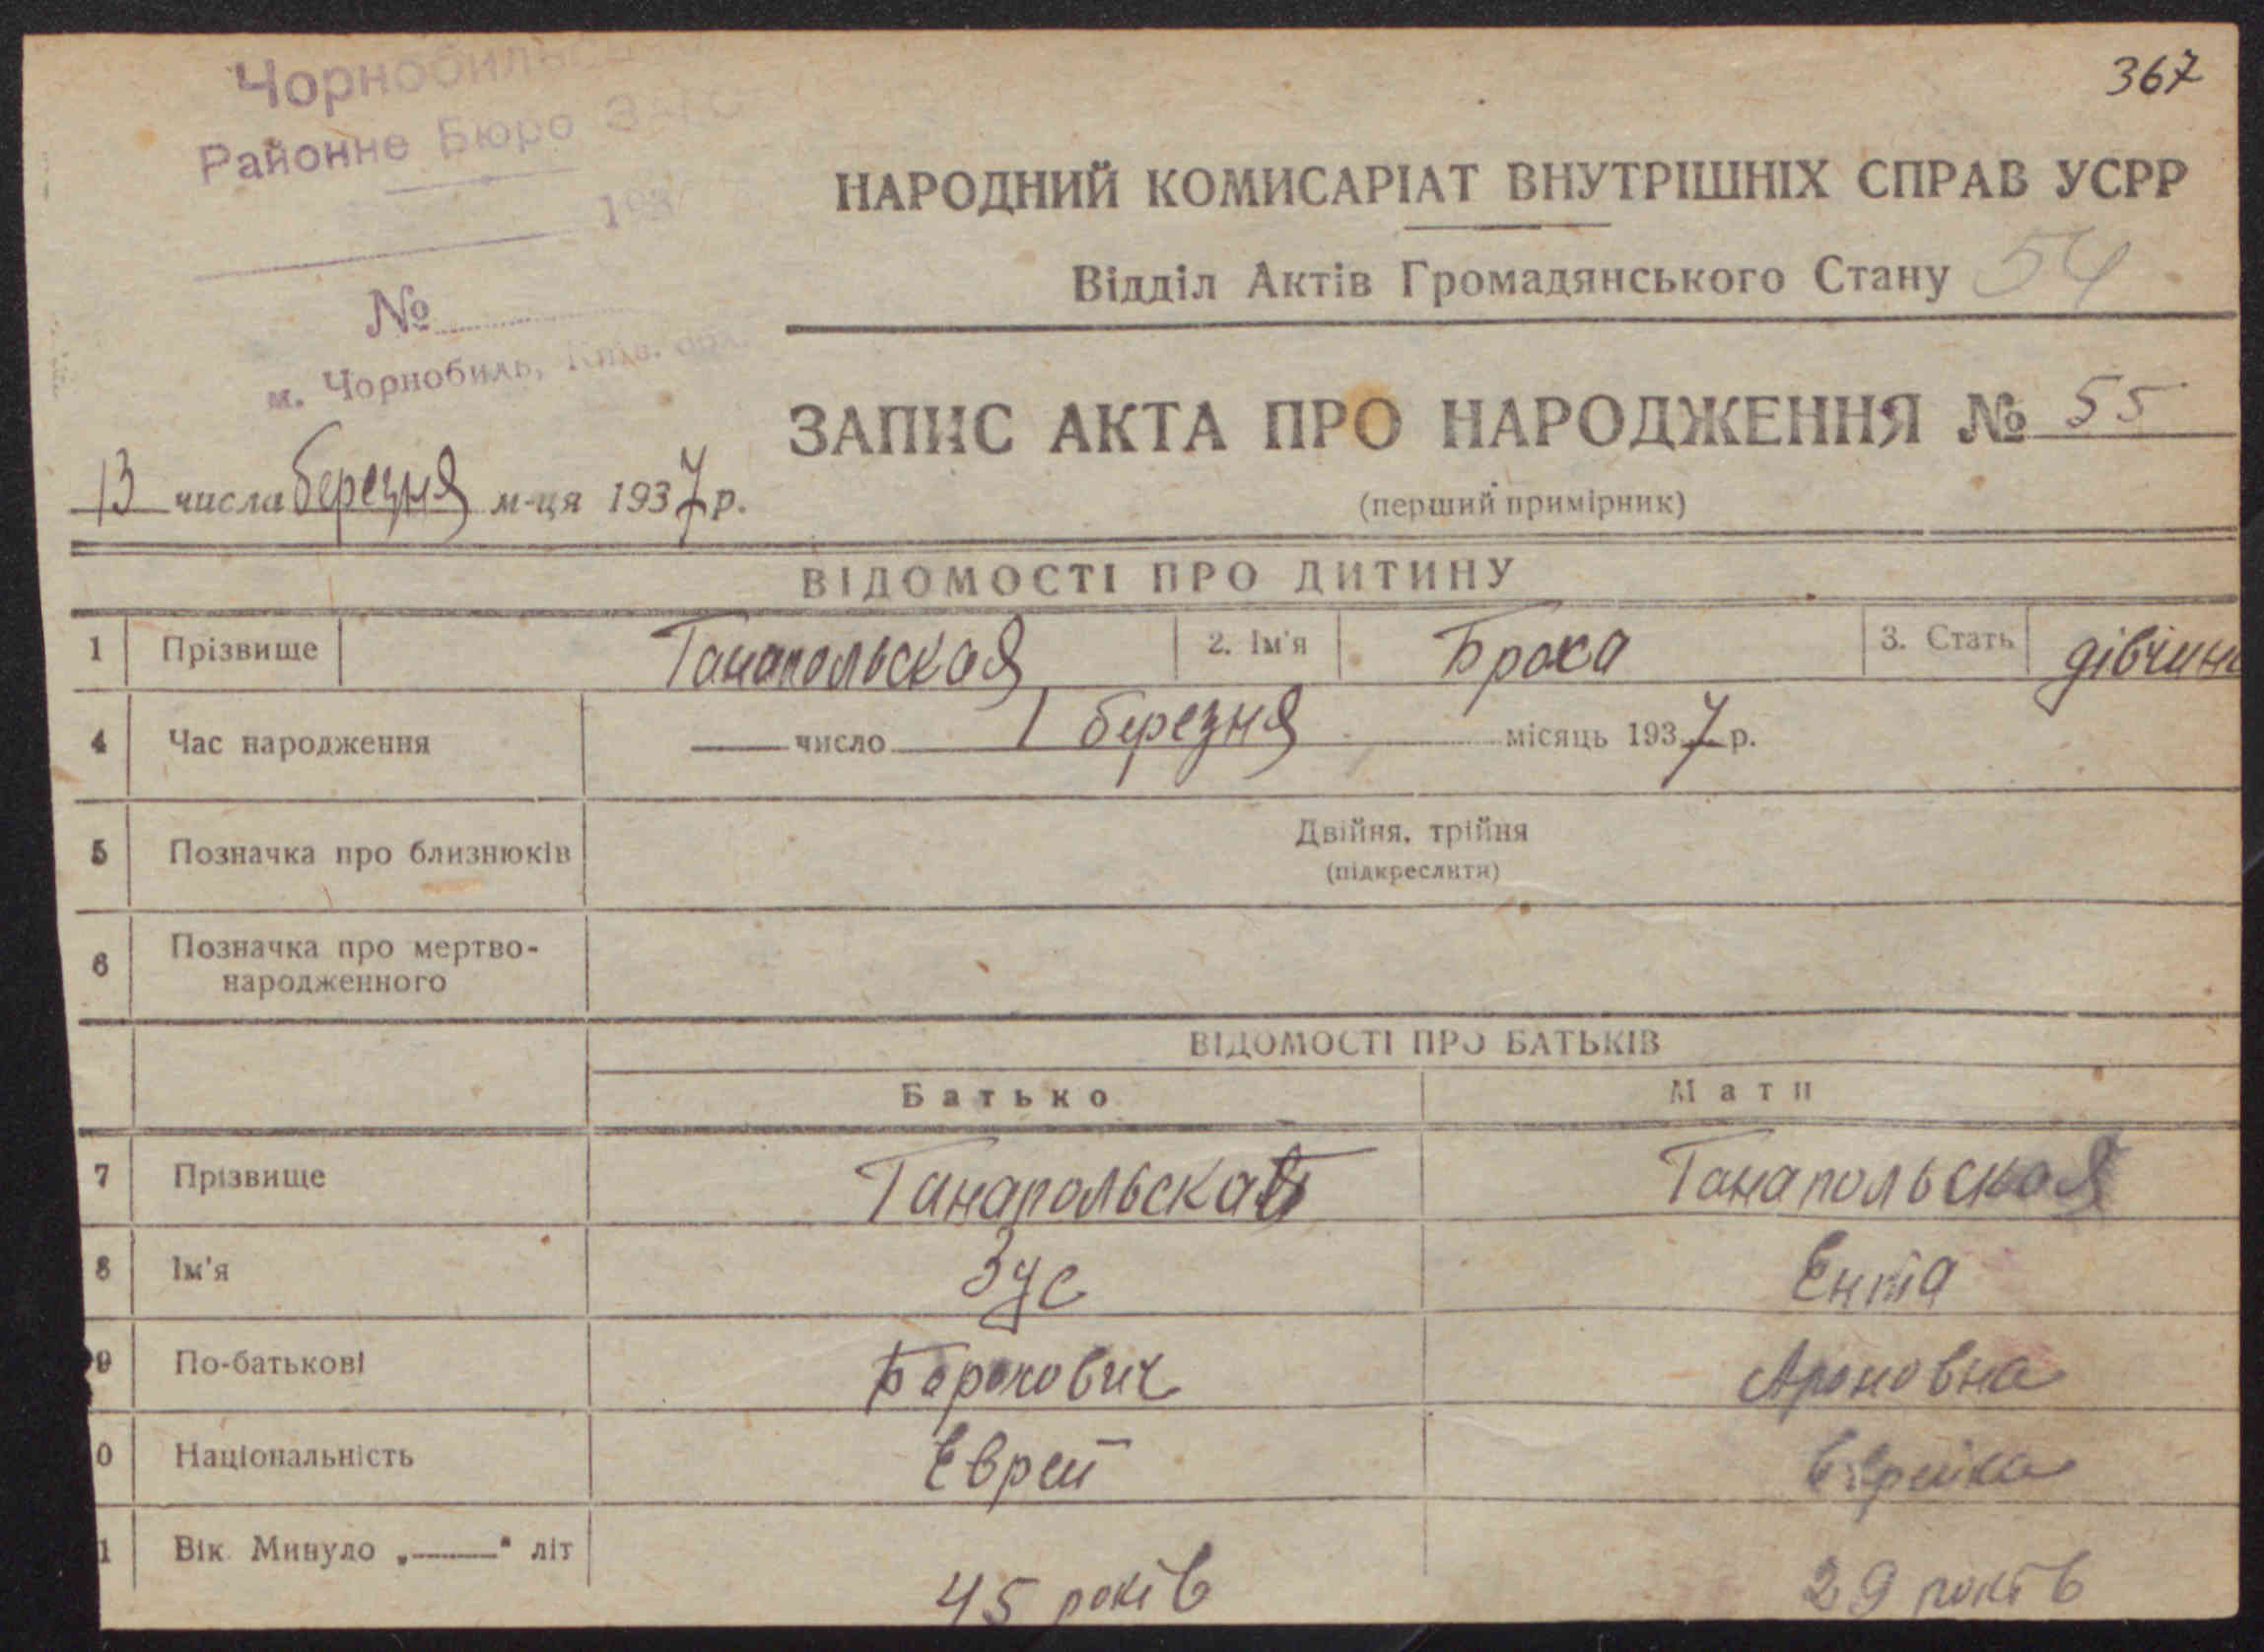 367
Чорнобильське
Районне Бюро ЗАГС
193
№
м. Чорнобиль, Київ. обл.
НАРОДНИЙ КОМИСАРІАТ ВНУТРІШНІХ СПРАВ УСРР
Відділ Актів Громадянського Стану 54
ЗАПИС АКТА ПРО НАРОДЖЕННЯ № 55
(перший примірник)
13 числа березня м-ця 1937 р.
ВІДОМОСТІ ПРО ДИТИНУ
1 Прізвище Ганапольская 2. Ім'я Броха 3. Стать дівчина
4 Час народження число 1 березня місяць 1937 р.
5 Позначка про близнюків Двійня, трійня
(підкреслити)
6 Позначка про мертво-
народженного
ВІДОМОСТІ ПРО БАТЬКІВ
Батько Мати
7 Прізвище Ганапольская Ганапольская
8 Ім'я Зус Ента
9 По-батькові Борохович Ароновна
0 Національність Еврей Еврейка
1 Вік. Минуло „ “ літ 45 років 29 років